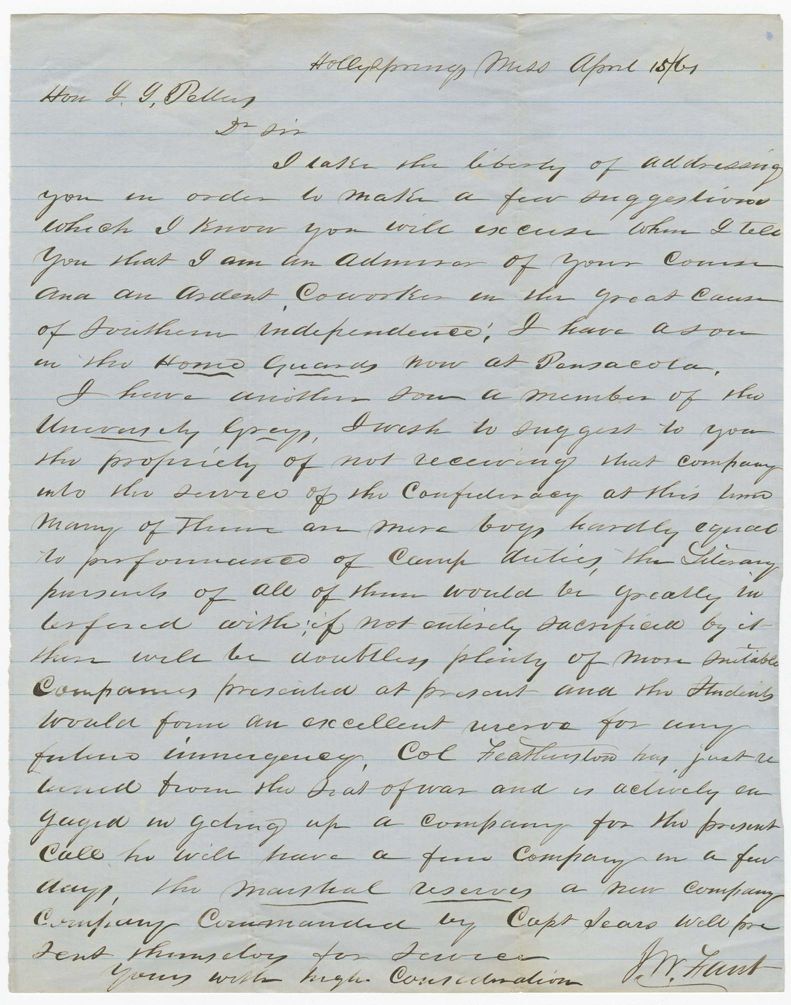 Holly Springs Miss April 15/61
Hon J. J, Pettus
Dr Sir
I take the liberty of addressing
you in order to make a few suggestions
which I know you will excuse when I tell
you that I am an admirer of your Course
and an ardent Coworker in the great Cause
of Southern independence, I have a son
in the Home Guards now at Pensacola.
I have another son a member of the
University Greys, I wish to suggest to you
the propriety of not receiving that company
into the service of the Confederacy at this time
Many of them are mere boys hardly equal
to performance of Camp duties, the Literary
pursuits of all of them would be greatly in
terfered with, if not entirely sacrificed by it
there will be doubtless plenty of more suitable
Companies presented at present and the Students
would form an excellent reserve for any
future immergency, Col Featherston has just re
turned from the Seat of war and is actively en
gaged in geting up a company for the present
Call he will have a fine Company in a few
days, the marshal reserves a new company
Company Commanded by Capt Sears will pre
sent themselves for service
Yours with high Consideration J. W. Fant